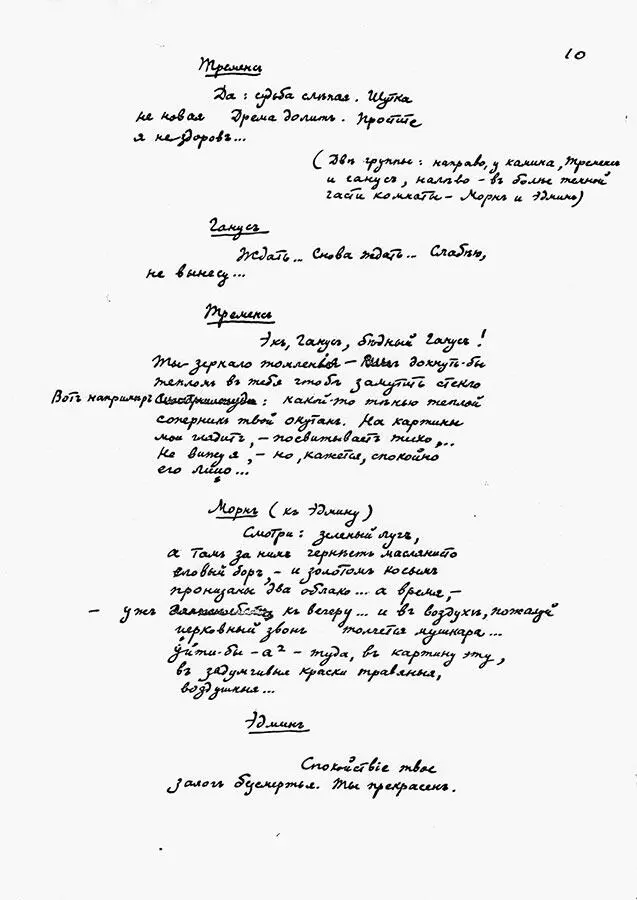 10
Тременсъ
Да: судьба слѣпая. Шутка
не новая Дрема долитъ. Простите
я не здоровъ...
(Двѣ группы: направо, у камина, Тременсъ
и Ганусъ, налѣво – въ болѣе темной
части комнаты – Морнъ и Эдминъ)
Ганусъ
Ждать... Снова ждать... Слабѣю,
не вынесу...
Тременсъ
Эхъ, Ганусъ, бѣдный Ганусъ!
Ты зеркало томленья – дохнуть-бы
тепломъ въ тебя чтобъ замутить стекло
Вотъ напримѣръ: какой-то тѣнью теплой
соперникъ твой окутанъ. На картины
мои глядитъ, – посвитываетъ тихо,..
Не вижу я, – но, кажется, спокойно
его лицо...
Морнъ (къ Эдмину)
Смотри: зеленый лугъ,
а тамъ за нимъ чернѣетъ маслянисто
еловый боръ, – и золотомъ косымъ
пронизаны два облако... а время, –
– ужъ къ вечеру... и въ воздухѣ, пожалуй
церковный звонъ толчется мушкара...
Уйти-бы – туда, въ картину эту,
въ задумчивыя краски травяныя,
воздушныя...
Эдминъ
Спокойствіе твое
залогъ безсмертья. Ты прекрасенъ.